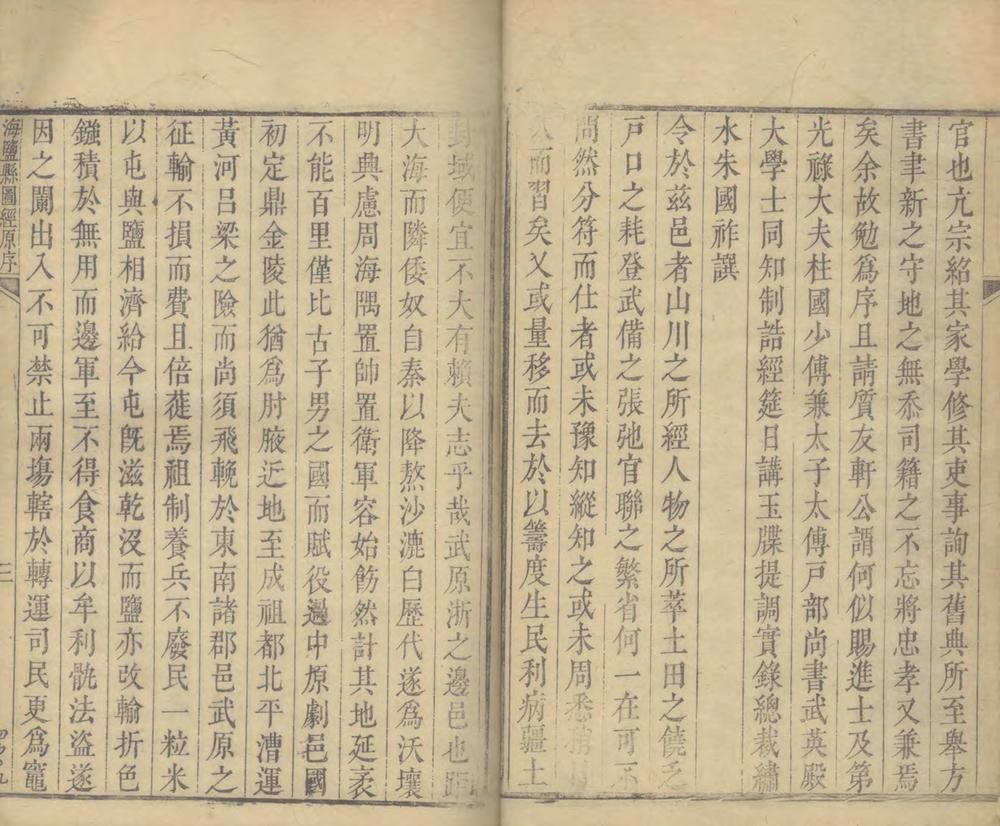 官也亢宗紹其家學修其吏事詢其舊典所至舉方
書聿新之守地之無忝司籍之不忘將忠孝又兼焉
矣余故勉爲序且請質友軒公謂何似賜進士及第
光祿大夫柱國少傅兼太子太傅戶部尚書武英殿
大學士同知制誥經筵日講玉牒提調實錄總裁繡
水朱國祚譔
令於茲邑者山川之所經人物之所萃土田之饒乏
戶口之耗登武備之張弛官聯之繁省何一在可不
問然分符而仕者或未豫知縱知之或未周悉
入而習矣又或量移而去於以籌度生民利病疆土
封域便宜不大有賴夫志乎哉武原浙之邊邑也距
大海而隣倭奴自秦以降熬沙漉白歷代遂爲沃壤
明興慮周海隅置帥置衛軍容始飭然計其地延袤
不能百里僅比古子男之國而賦役過中原劇邑國
初定鼎金陵此猶爲肘腋近地至成祖都北平漕運
黃河呂梁之險而尚須飛輓於東南諸郡邑武原之
征輸不損而費且倍蓰焉祖制養兵不廢民一粒米
以屯與鹽相濟給今屯旣滋乾沒而鹽亦改輸折色
鏹積於無用而邊軍至不得食商以牟利骩法盜遂
因之闌出入不可禁止兩塲轄於轉運司民更爲竈
海鹽縣圖經原序
三